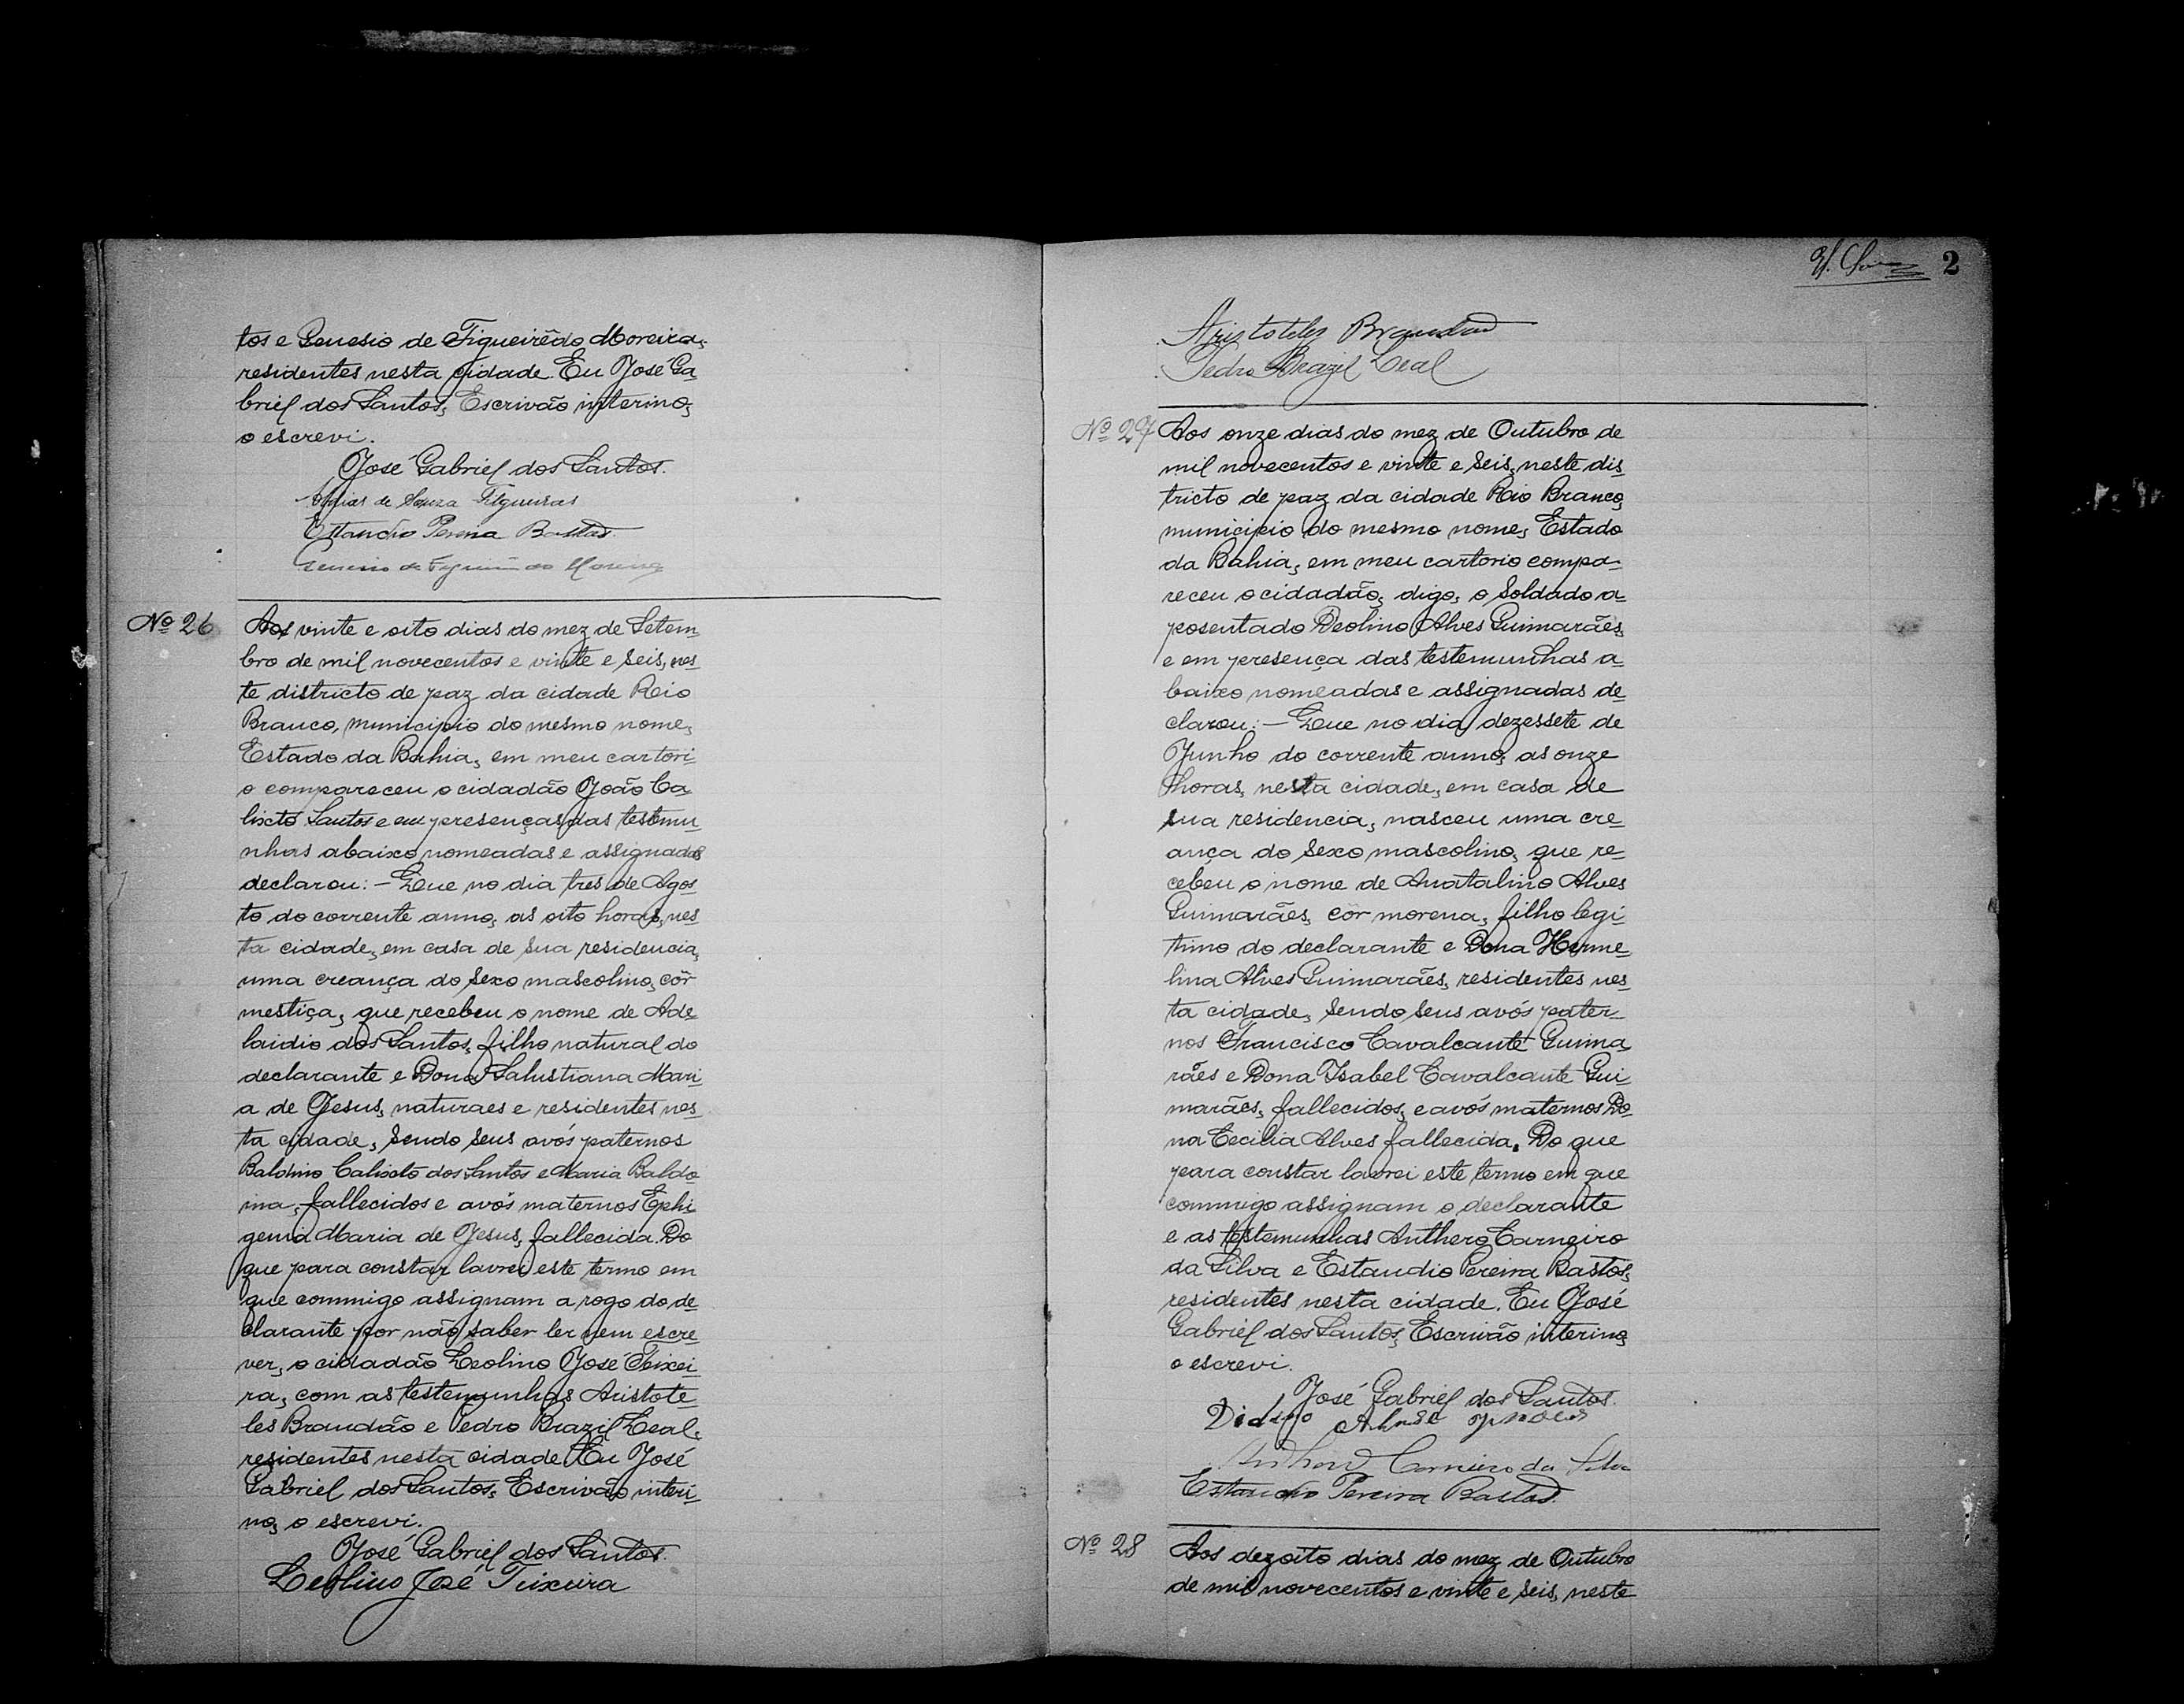 tos e Genesio de Figueirêdo Moreira,
residentes nesta cidade. Eu José Ga-
briel dos Santos, Escrivão interino,
o escrevi.
José Gabriel dos Santos.
de Souza Filgueiras
Estandio Pereira Bastos.
Genesio de Figueirêdo Moreira
Nº 26
Aos vinte e oito dias do mez de Setem-
bro de mil novecentos e vinte e seis, nes-
te districto de paz da cidade Rio
Branco, municipio do mesmo nome,
Estado da Bahia, em meu cartori-
o compareceu o cidadão João Ca-
lixto Santos e em presenças das testemu-
nhas abaixo nomeadas e assignadas
declarou: – Que no dia tres de Agos-
to do corrente anno, as oito horas, nes-
ta cidade, em casa de sua residencia,
uma creança do sexo mascolino, côr
mestiça, que recebeu o nome de Ade-
laidio dos Santos, filho natural do
declarante e Dona Salustiana Mari-
a de Jesus, naturaes e residentes nes-
ta cidade, sendo seus avós paternos
Baldino Calixto dos Santos e Maria Baldo-
ina, fallecidos e avós maternos Ephi-
genia Maria de Jesus, fallecida. Do
que para constar lavrei este termo em
que commigo assignam a rogo do de-
clarante por não saber ler nem escre-
ver, o cidadão Leolino José Teixei-
ra, com as testemunhas Aristote-
les Brandão e Pedro Brazil Leal,
residentes nesta cidade. Eu José
Gabriel dos Santos, Escrivão interi-
no, o escrevi.
José Gabriel dos Santos.
Leolino José Teixeira
2
Aristoteles Brandão
Pedro Brazil Leal
Nº 27
Aos onze dias do mez de Outubro de
mil novecentos e vinte e seis, neste dis-
tricto de paz da cidade Rio Branco,
municipio do mesmo nome, Estado
da Bahia, em meu cartorio compa-
receu o cidadão, digo, o Soldado a-
posentado Deolino Alves Guimarães,
e em presença das testemunhas a-
baixo nomeadas e assignadas de-
clarou: – Que no dia dezessete de
Junho do corrente anno, as onze
horas, nesta cidade, em casa de
sua residencia, nasceu uma cre-
ança do sexo mascolino, que re-
cebeu o nome de Anatalino Alves
Guimarães, côr morena, filho legi-
timo do declarante e Dona Herme-
lina Alves Guimarães, residentes nes-
ta cidade, sendo seus avós pater-
nos Francisco Cavalcante Guima-
rães e Dona Isabel Cavalcante Gui-
marães, fallecidos, e avós maternos Do-
na Cecilia Alves fallecida. Do que
para constar lavrei este termo em que
commigo assignam o declarante
e as testemunhas Anthero Carneiro
da Silva e Estandio Pereira Bastos,
residentes nesta cidade. Eu José
Gabriel dos Santos, Escrivão interino
o escrevi.
José Gabriel dos Santos.
Carneiro da Silva
Estandio Pereira Bastos.
Nº 28
Aos dezoito dias do mez de Outubro
de mil novecentos e vinte e seis, neste